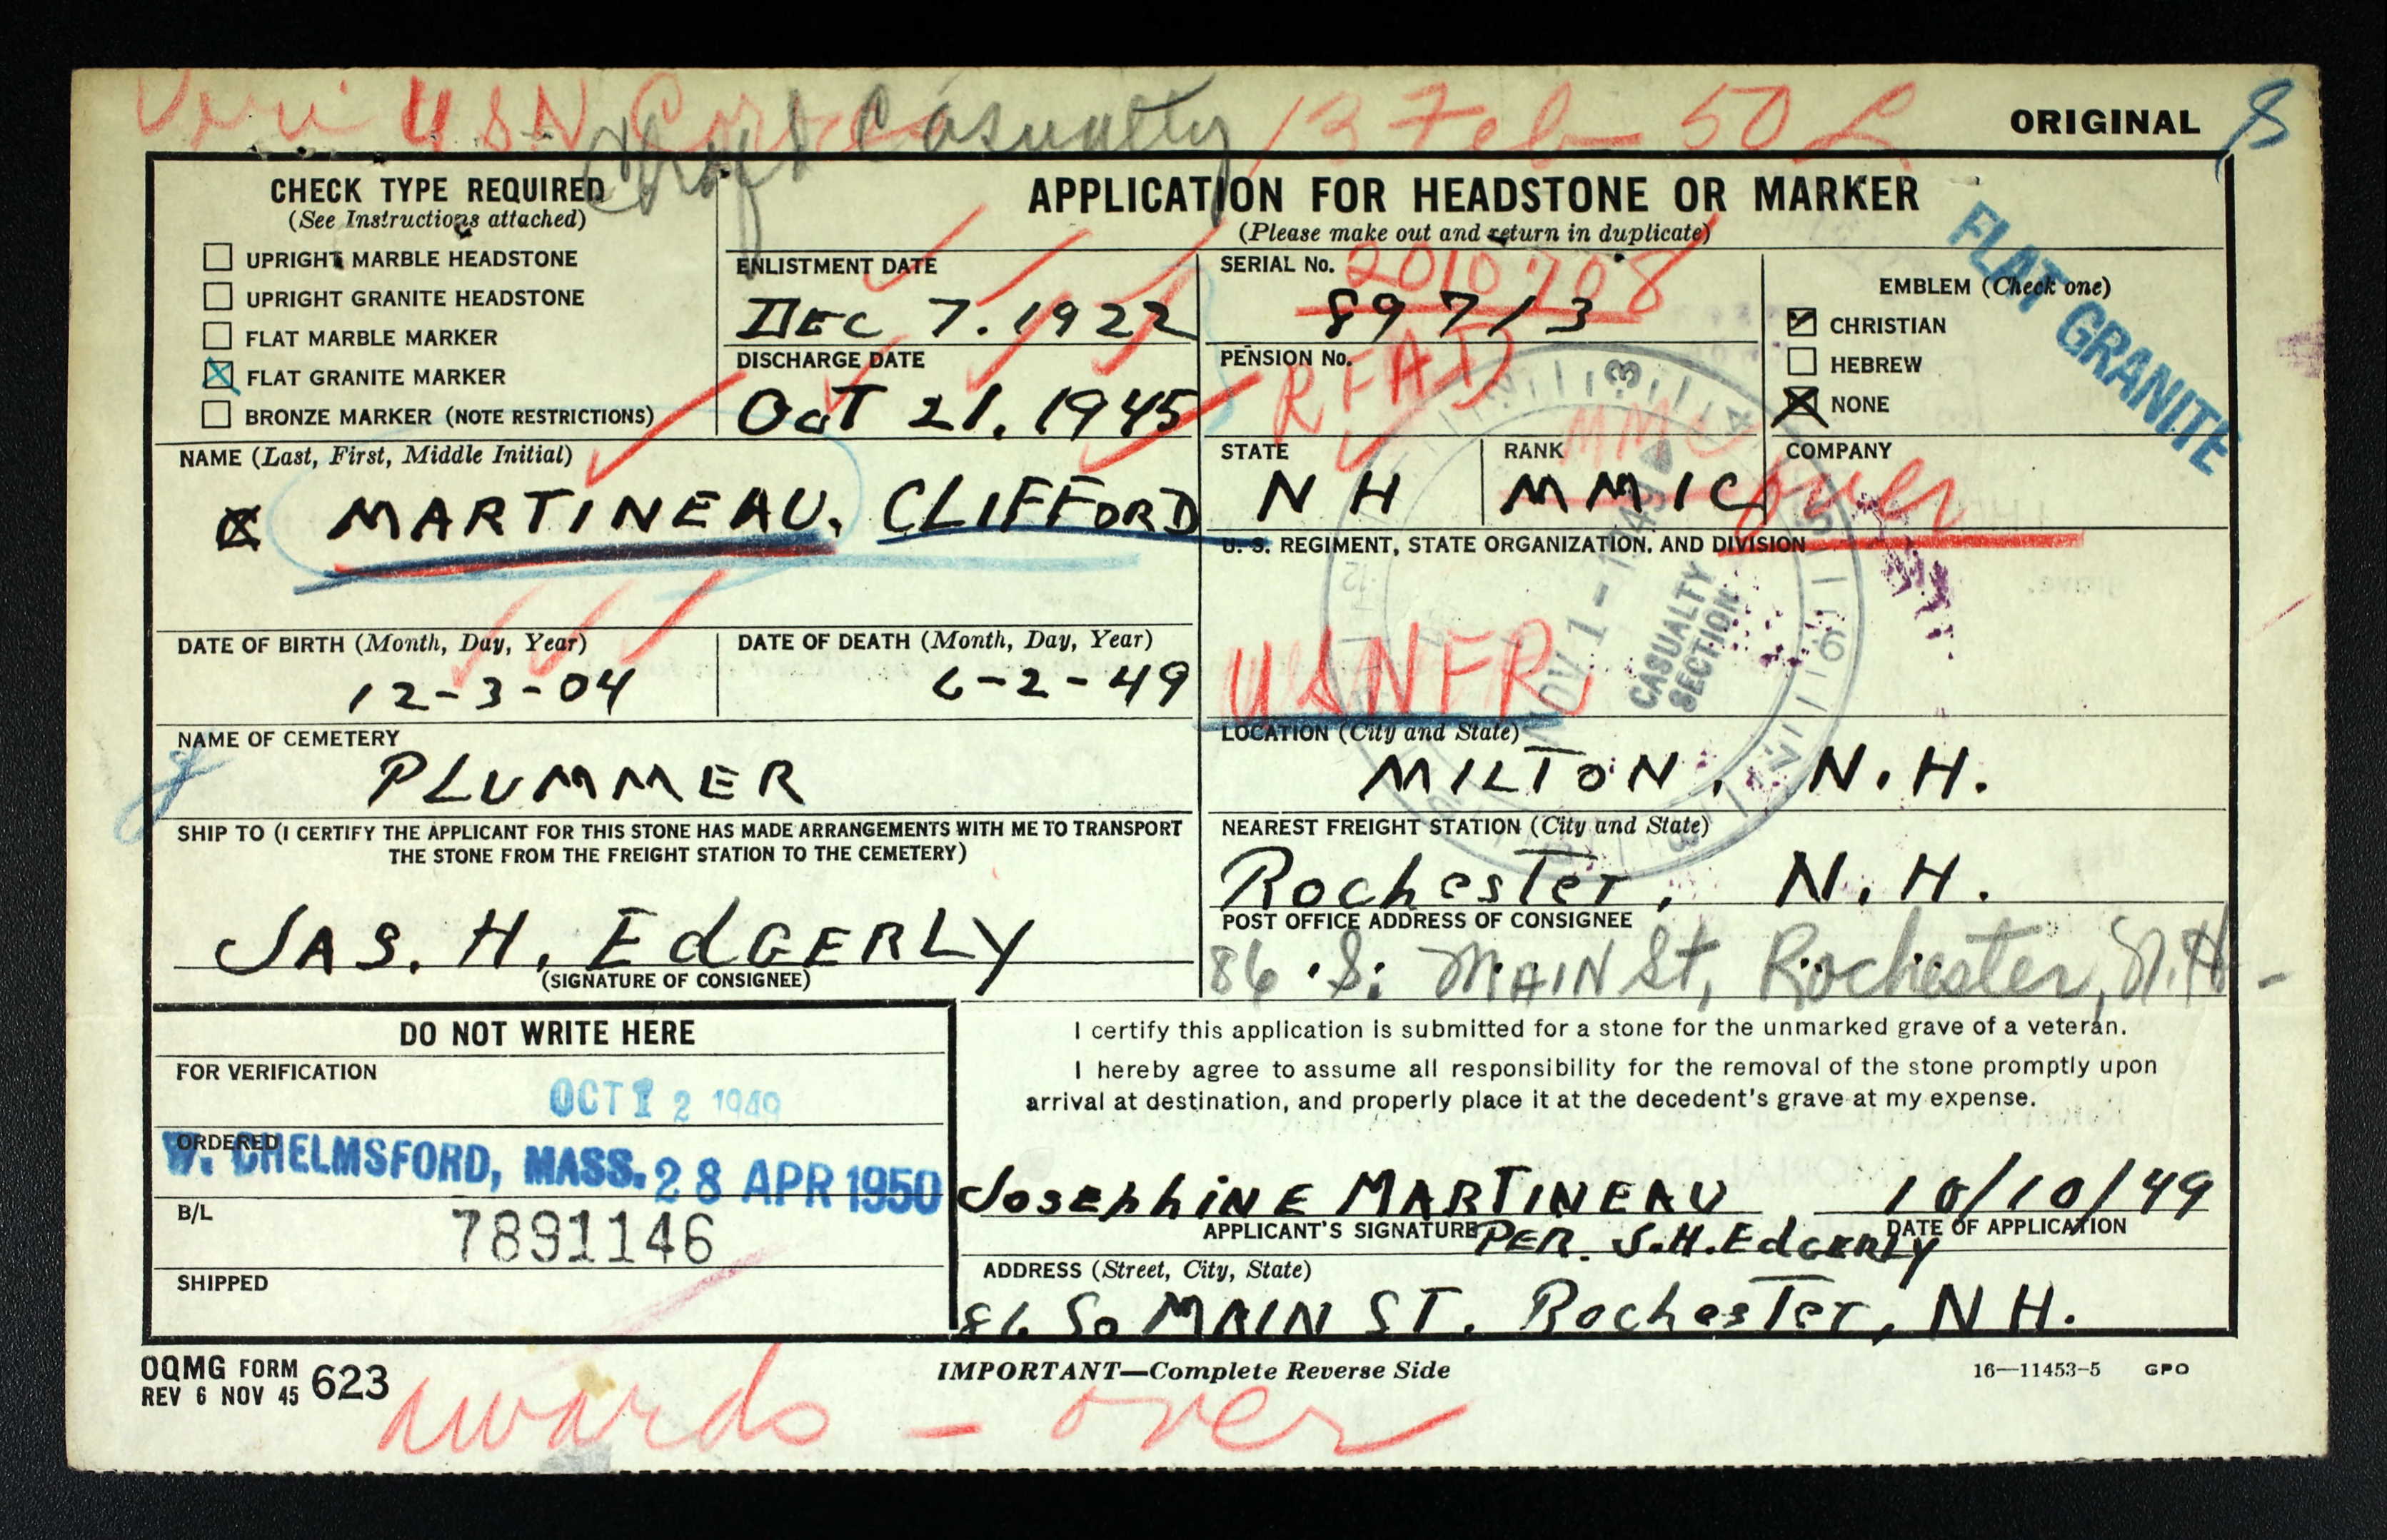 Veri USN 13 Feb 50
Casualty
ORIGINAL
CHECK TYPE REQUIRED
(See Instructions attached)
UPRIGHT MARBLE HEADSTONE
UPRIGHT GRANITE HEADSTONE
FLAT MARBLE MARKER
FLAT GRANITE MARKER
BRONZE MARKER (NOTE RESTRICTIONS)
APPLICATION FOR HEADSTONE OR MARKER
(Please make out and return in duplicate)
ENLISTMENT DATE
DEC 7. 1922
DISCHARGE DATE
OcT 21. 1945
SERIAL No. 2010708
89713
PENSION No.
EMBLEM (Check one)
CHRISTIAN
HEBREW
NONE
FLAT GRANITE
NAME (Last, First, Middle Initial)
MARTINEAU. CLIFFORD
STATE
NH
RANK
MM1C
COMPANY
over
U. S. REGIMENT, STATE ORGANIZATION, AND DIVISION
USNFR
NOV 1 - 1949
CASUALTY
SECTION
DATE OF BIRTH (Month, Day, Year)
12-3-04
DATE OF DEATH (Month, Day, Year)
6-2-49
NAME OF CEMETERY
PLUMMER
LOCATION (City and State)
MILTON, N.H.
SHIP TO (I CERTIFY THE APPLICANT FOR THIS STONE HAS MADE ARRANGEMENTS WITH ME TO TRANSPORT
THE STONE FROM THE FREIGHT STATION TO THE CEMETERY)
JAS. H. EdGERLY
(SIGNATURE OF CONSIGNEE)
NEAREST FREIGHT STATION (City and State)
Rochester, N.H.
POST OFFICE ADDRESS OF CONSIGNEE
86 S. MAIN St, Rochester, N.H-
DO NOT WRITE HERE
FOR VERIFICATION
OCT 12 1949
ORDERED
W. CHELMSFORD, MASS. 28 APR 1950
B/L
7891146
SHIPPED
I certify this application is submitted for a stone for the unmarked grave of a veteran.
I hereby agree to assume all responsibility for the removal of the stone promptly upon
arrival at destination, and properly place it at the decedent's grave at my expense.
JosephiNE MARTINEAU 10/10/49
APPLICANT'S SIGNATURE DATE OF APPLICATION
PER. J.H. EdGERLY
ADDRESS (Street, City, State)
86 So MAIN ST. Rochester, N H.
OQMG FORM 623
REV 6 NOV 45
IMPORTANT—Complete Reverse Side
16—11453-5 GPO
awards - over